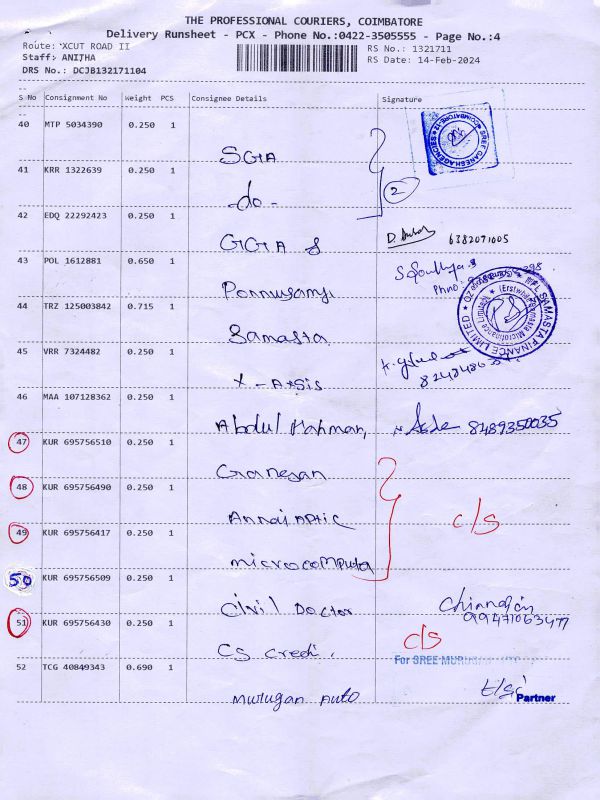 THE PROFESSIONAL COURIERS, COIMBATORE
Delivery Runsheet - PCX - Phone No.:0422-3505555 - Page No.:4
Route: XCUT ROAD II
RS No.: 1321711
Staff: ANITHA
RS Date: 14-Feb-2024
DRS No.: DCJB132171104
S No Consignment No Weight PCS Consignee Details Signature
40 MTP 5034390 0.250 1 SGA
SREE GANESH AGENCIES
41 KRR 1322639 0.250 1 -do-
2
42 EDQ 22292423 0.250 1 GGA &
D. 6382071005
43 POL 1612881 0.650 1 Ponnusamy
Phno:
44 TRZ 125003842 0.715 1 Samasta
SAMASTA FINANCE LIMITED
(Erstwhile Samasta Microfinance Limited)
45 VRR 7324482 0.250 1 X-Axsis
46 MAA 107128362 0.250 1 Abdul Rahman,
8489350035
47 KUR 695756510 0.250 1 Ganesan
48 KUR 695756490 0.250 1 Annai
c/s
49 KUR 695756417 0.250 1 microcomputa
50 KUR 695756509 0.250 1 Civil Doctor
99471063477
51 KUR 695756430 0.250 1 CS credi.
c/s
For SREE
52 TCG 40849343 0.690 1 Murugan Auto
Partner